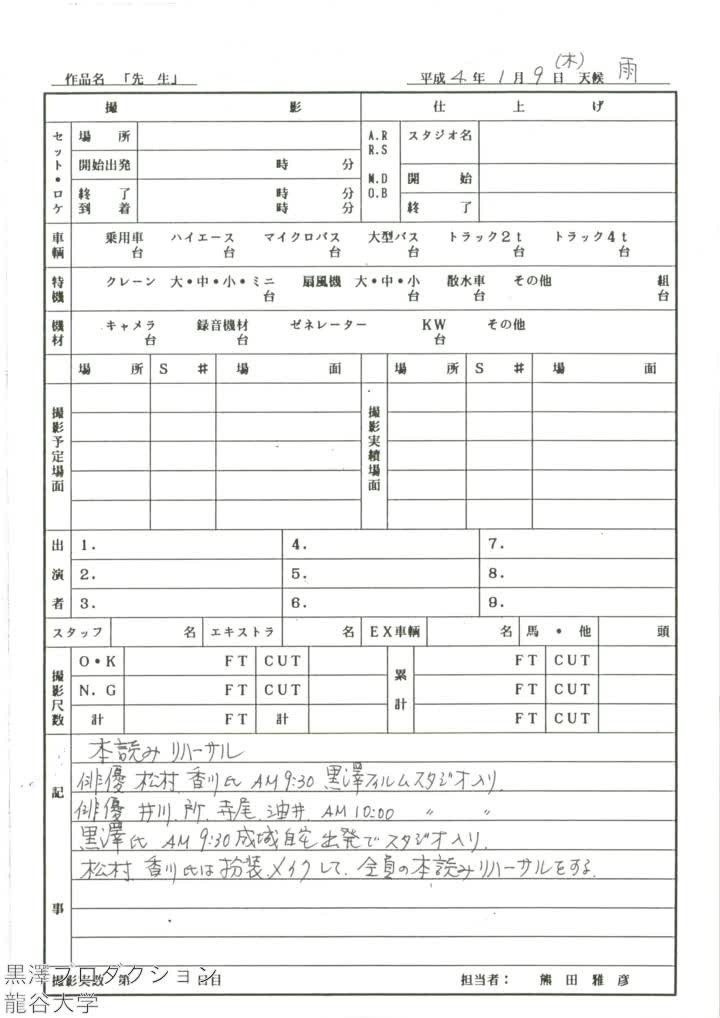 作品名 「先 生」 平成 4 年 1 月 9 日 (木) 天候 雨
撮 影 仕 上 げ
セット・ロケ 場 所 A.R R.S M.D O.B スタジオ名
開始出発 時 分 開 始
終 了 時 分 終 了
到 着 時 分
車輌 乗用車 台 ハイエース 台 マイクロバス 台 大型バス 台 トラック2t 台 トラック4t 台
特機 クレーン 大・中・小・ミニ 台 扇風機 大・中・小 台 散水車 台 その他 組 台
機材 キャメラ 台 録音機材 台 ゼネレーター KW 台 その他
場 所 S # 場 面 場 所 S # 場 面
撮影予定場面 撮影実績場面
出演者 1. 4. 7.
2. 5. 8.
3. 6. 9.
スタッフ 名 エキストラ 名 EX車輌 名 馬・他 頭
撮影尺数 O・K FT CUT 累計 FT CUT
N.G FT CUT FT CUT
計 FT 計 FT CUT
記事
本読み リハーサル
俳優 松村、香川氏 AM 9:30 黒澤フィルムスタジオ入り.
俳優 井川、所、寺尾、油井、AM 10:00 〃 〃
黒澤氏 AM 9:30 成城自宅出発でスタジオ入り.
松村、香川氏は扮装、メイクして、全員の本読みリハーサルをする.
撮影実数 第 日目 担当者: 熊 田 雅 彦
黒澤プロダクション
龍谷大学